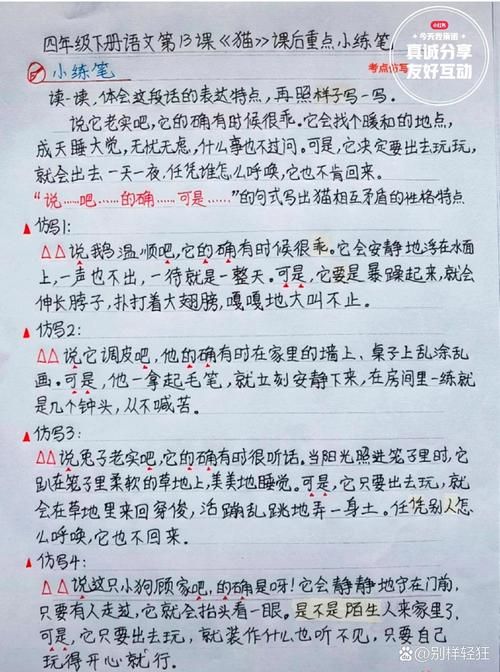 四年级下册语文第13课《猫》课后重点小练笔
小红书
今天我来哦
真诚分享
友好互动
小练笔
考点仿写
读一读,体会这段话的表达特点,再照样子写一写.
说它老实吧,它的确有时候很乖。它会找个暖和的地点,
成天睡大觉,无忧无虑,什么事也不过问。可是,它决定要出去玩玩,
就会出去一天一夜,任凭谁怎么呼唤,它也不肯回来。
“说……吧……的确……可是……”的句式写出猫相互矛盾的性格特点
仿写1:
说鹅温顺吧,它的确有时候很乖。它会安静地浮在水面
上,一声也不出,一待就是一整天。可是,它要是暴躁起来,就会
伸长脖子,扑打着大翅膀,嘎嘎地大叫不止。
仿写2:
说它调皮吧,他的确有时在家里的墙上、桌子上乱涂乱
画。可是,他一拿起毛笔,就立刻安静下来,在房间里一练就
是几个钟头,从不喊苦。
仿写3:
说兔子老实吧,它的确有时很听话。当阳光照进笼子里时,它
趴在笼子里柔软的草地上,美美地睡觉。可是,它只要出去玩,就
会在草地里来回穿俊,活蹦乱跳地弄一身土。任凭别人怎
么呼唤,它也不回来.
仿写4:
说这只小狗顾家吧,的确是呀!它会静静地守在门前,
只要有人走过,它就会抬头看一眼。是不是陌生人来家里了,
可是,它只要出去玩,就装作什么也听不见,只要自己
玩得开心就行。
@别样轻狂